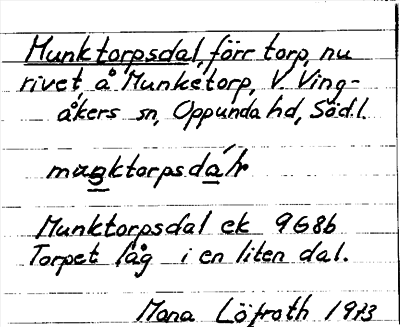 Munktorpsdal, förr torp, nu
rivet, å Munketorp, V. Ving-
åkers sn, Oppunda hd, Södl.
Munktorpsdal ek 9G8b
Torpet låg i en liten dal.
Mona Löfroth 1973